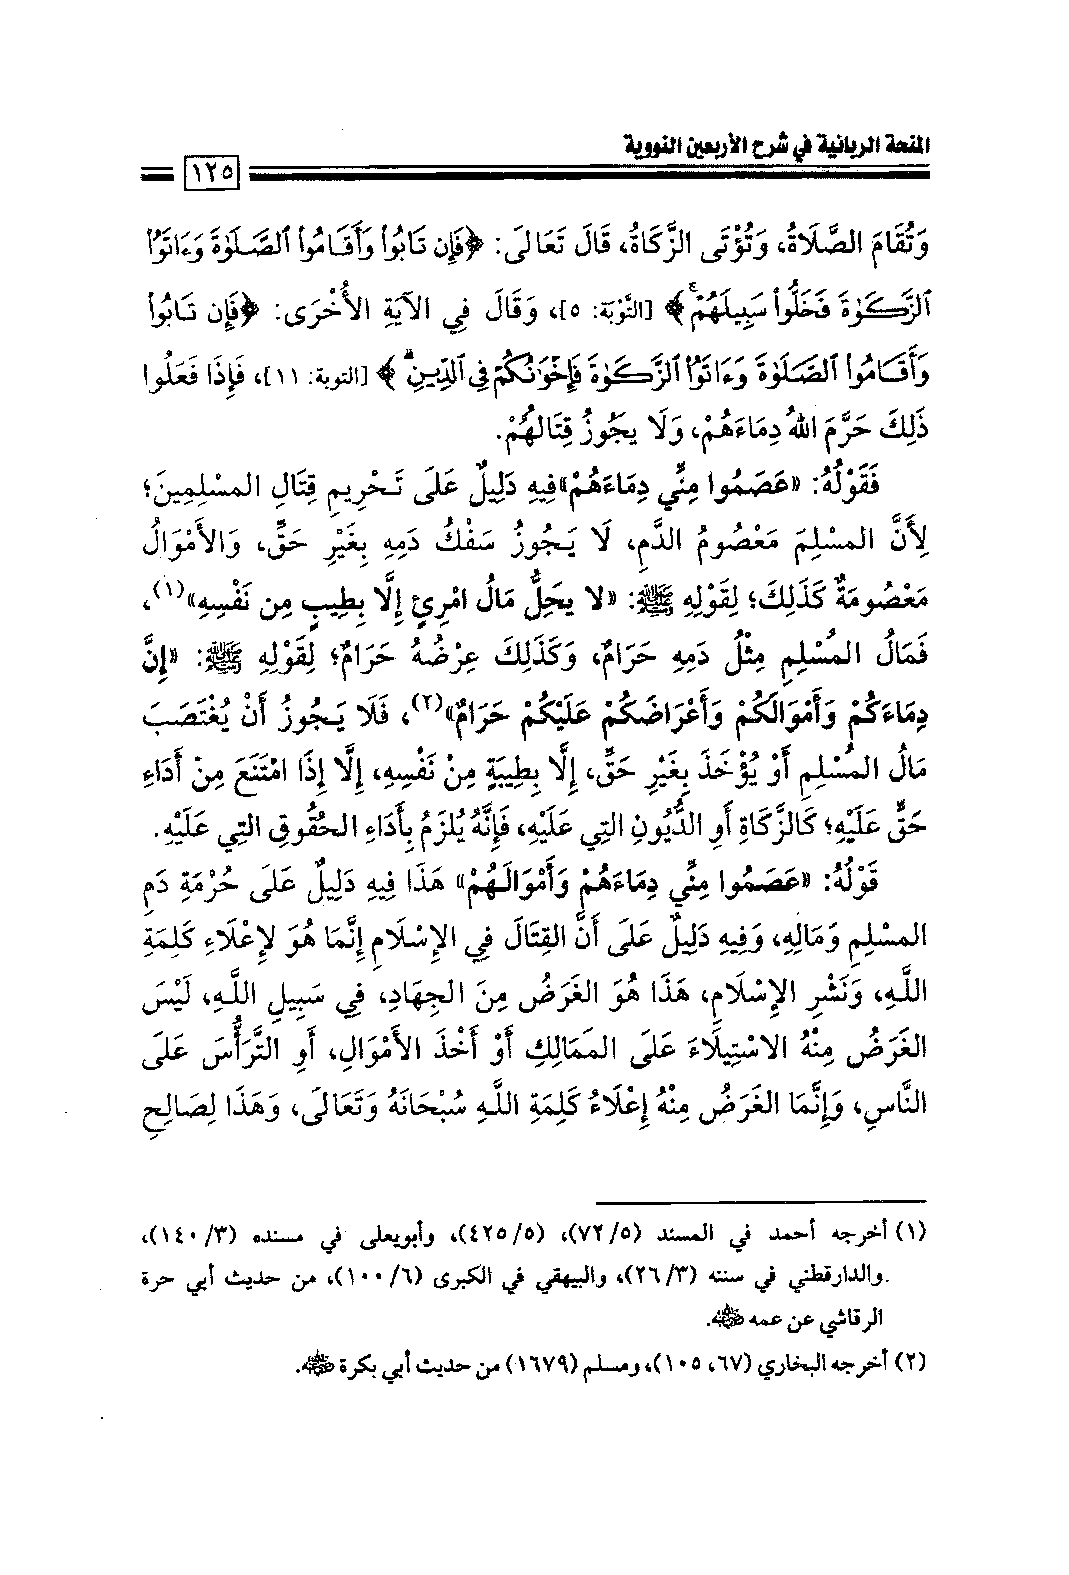 المنحة الربانية في شرح الأربعين النووية
١٢٥
وَتُقَامَ الصَّلَاةُ، وَتُؤْتَى الزَّكَاةُ، قَالَ تَعَالَى: ﴿فَإِن تَابُوا۟ وَأَقَامُوا۟ ٱلصَّلَوٰةَ وَءَاتَوُا۟
ٱلزَّكَوٰةَ فَخَلُّوا۟ سَبِيلَهُمْ﴾ [التَّوْبَة: ٥]، وَقَالَ فِي الآيَةِ الأُخْرَى: ﴿فَإِن تَابُوا۟
وَأَقَامُوا۟ ٱلصَّلَوٰةَ وَءَاتَوُا۟ ٱلزَّكَوٰةَ فَإِخْوَٰنُكُمْ فِي ٱلدِّينِ﴾ [التوبة: ١١]، فَإِذَا فَعَلُوا
ذَلِكَ حَرَّمَ اللهُ دِمَاءَهُمْ، وَلَا يَجُوزُ قِتَالُهُمْ.
فَقَوْلُهُ: «عَصَمُوا مِنِّي دِمَاءَهُمْ»فِيهِ دَلِيلٌ عَلَى تَحْرِيمِ قِتَالِ المسْلِمِينَ؛
لِأَنَّ المسْلِمَ مَعْصُومُ الدَّمِ، لَا يَجُوزُ سَفْكُ دَمِهِ بِغَيْرِ حَقٍّ، وَالأَمْوَالُ
مَعْصُومَةٌ كَذَلِكَ؛ لِقَوْلِهِ ﷺ: «لا يَحِلُّ مَالُ امْرِئٍ إِلَّا بِطِيبٍ مِن نَفْسِهِ»(١)،
فَمَالُ المُسْلِمِ مِثْلُ دَمِهِ حَرَامٌ، وَكَذَلِكَ عِرْضُهُ حَرَامٌ؛ لِقَوْلِهِ ﷺ: «إِنَّ
دِمَاءَكُمْ وَأَمْوَالَكُمْ وَأَعْرَاضَكُمْ عَلَيْكُمْ حَرَامٌ»(٢)، فَلَا يَجُوزُ أَنْ يُغْتَصَبَ
مَالُ المُسْلِمِ أَوْ يُؤْخَذَ بِغَيْرِ حَقٍّ، إِلَّا بِطِيبَةٍ مِنْ نَفْسِهِ، إِلَّا إِذَا امْتَنَعَ مِنْ أَدَاءِ
حَقٍّ عَلَيْهِ؛ كَالزَّكَاةِ أَوِ الدُّيُونِ التِي عَلَيْهِ، فَإِنَّهُ يُلزَمُ بِأَدَاءِ الحُقُوقِ التِي عَلَيْهِ.
قَوْلُهُ: «عَصَمُوا مِنِّي دِمَاءَهُمْ وَأَمْوَالَهُمْ» هَذَا فِيهِ دَلِيلٌ عَلَى حُرْمَةِ دَمِ
المسْلِمِ وَمَالِهِ، وَفِيهِ دَلِيلٌ عَلَى أَنَّ القِتَالَ فِي الإِسْلَامِ إِنَّمَا هُوَ لِإِعْلَاءِ كَلِمَةِ
اللَّهِ، وَنَشْرِ الإِسْلَامِ، هَذَا هُوَ الغَرَضُ مِنَ الجِهَادِ، فِي سَبِيلِ اللَّهِ، لَيْسَ
الغَرَضُ مِنْهُ الاسْتِيلَاءَ عَلَى المَمَالِكِ أَوْ أَخْذَ الأَمْوَالِ، أَوِ التَّرَأُّسَ عَلَى
النَّاسِ، وَإِنَّمَا الغَرَضُ مِنْهُ إِعْلَاءُ كَلِمَةِ اللَّهِ سُبْحَانَهُ وَتَعَالَى، وَهَذَا لِصَالِحِ
(١) أخرجه أحمد في المسند (٥/ ٧٢)، (٥/ ٤٢٥)، وأبويعلى في مسنده (٣/ ١٤٠)،
والدارقطني في سننه (٣/ ٢٦)، والبيهقي في الكبرى (٦/ ١٠٠)، من حديث أبي حرة
الرقاشي عن عمه ﵁.
(٢) أخرجه البخاري (٦٧، ١٠٥)، ومسلم (١٦٧٩) من حديث أبي بكرة ﵁.